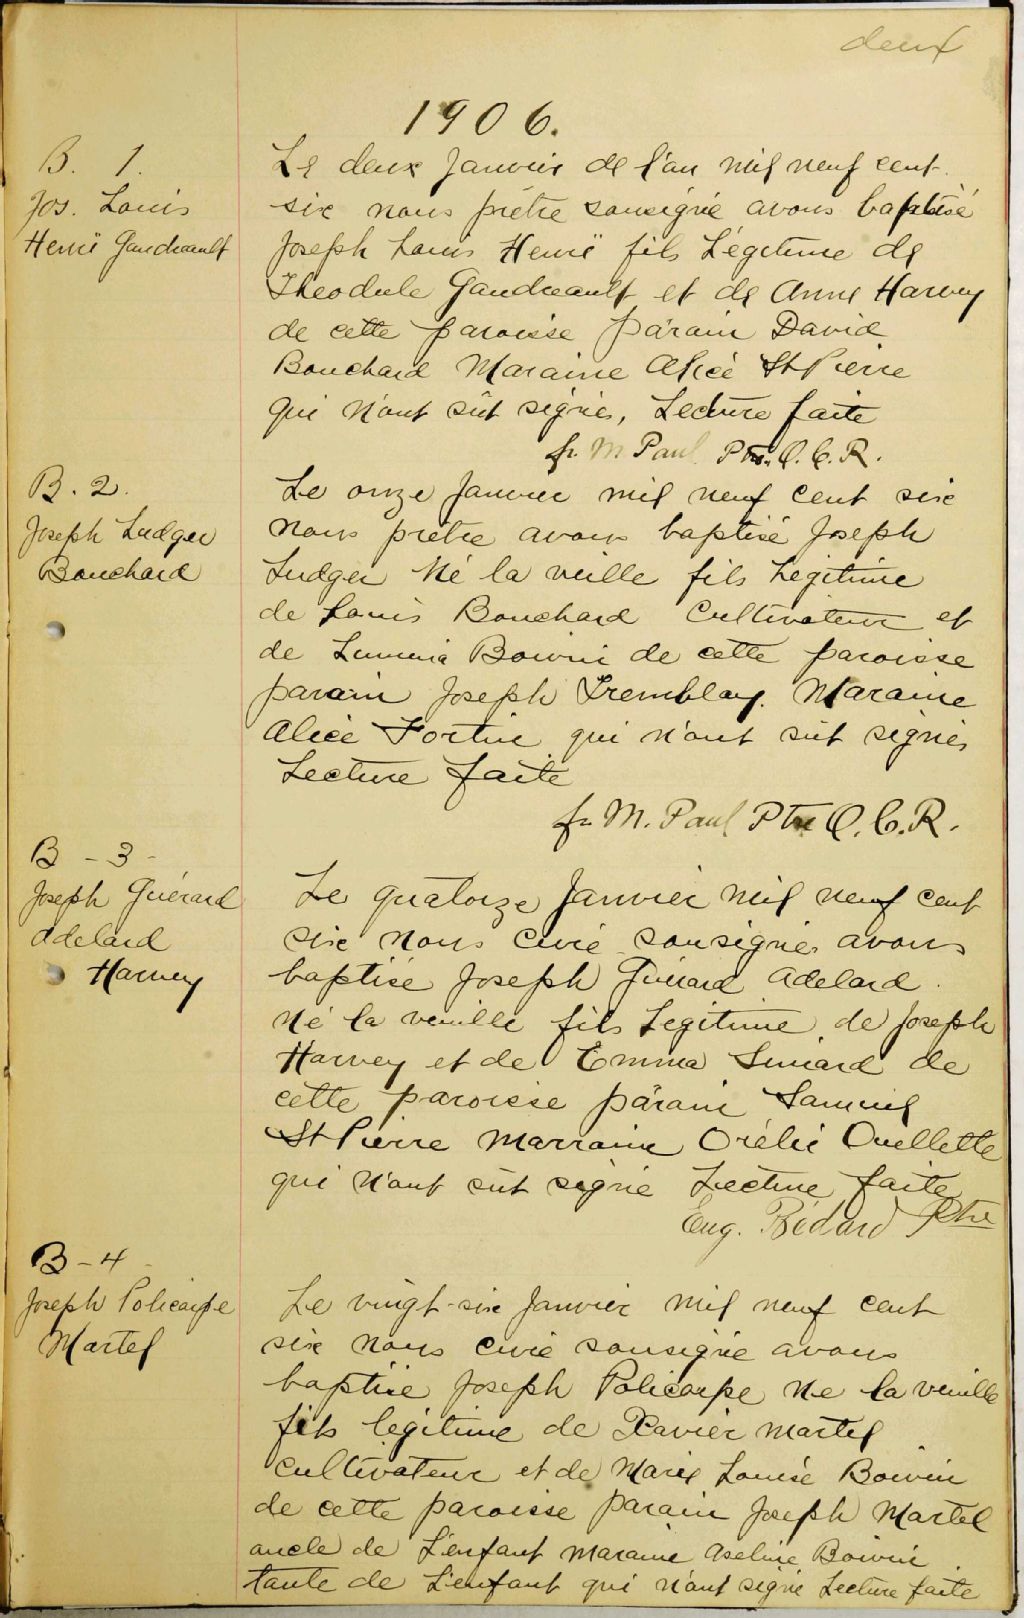 deux
1906.
B. 1.
Jos. Louis
Henri Gaudreault
Le deux Janvier de l'an mil neuf cent
six nous prêtre sousigné avons baptisé
Joseph Louis Henri fils Légitime de
Théodule Gaudreault et de Anne Harvey
de cette paroisse párain David
Bouchard Maraine Alice St Pierre
qui n'ont sût signés, Lecture faite
fr. M Paul Ptre. O. C. R.
B. 2.
Joseph Ludger
Bouchard
Le onze Janvier mil neuf cent six
nous prêtre avons baptisé Joseph
Ludger Né la veille fils Légitime
de Louis Bouchard Cultivateur et
de Boivin de cette paroisse
parain Joseph Tremblay. Maraine
Alice Fortin qui n'ont sût signés
Lecture faite
fr M. Paul Ptre O. C. R.
B - 3 -
Joseph Guérard
Adelard
Harvey
Le quatorze Janvier mil neuf cent
six nous curé sousigné avons
baptisé Joseph Guérard Adelard
Né la veuille fils Legitime de Joseph
Harvey et de Emma Simard de
cette paroisse párain Samuel
St Pierre Marraine Orélie Ouellette
qui n'ont sût signé Lecture faite
Eug. Bédard Ptre
B - 4 -
Joseph Policarpe
Martel
Le vingt-six Janvier mil neuf cent
six nous curé sousigné avons
baptisé Joseph Policarpe Ne la veuille
fils légitime de Xavier Martel
Cultivateur et de Marie Louise Boivin
de cette paroisse parain Joseph Martel
oncle de L'enfant Maraine Aseline Boivin
tante de L'enfant qui n'ont signé Lecture faite